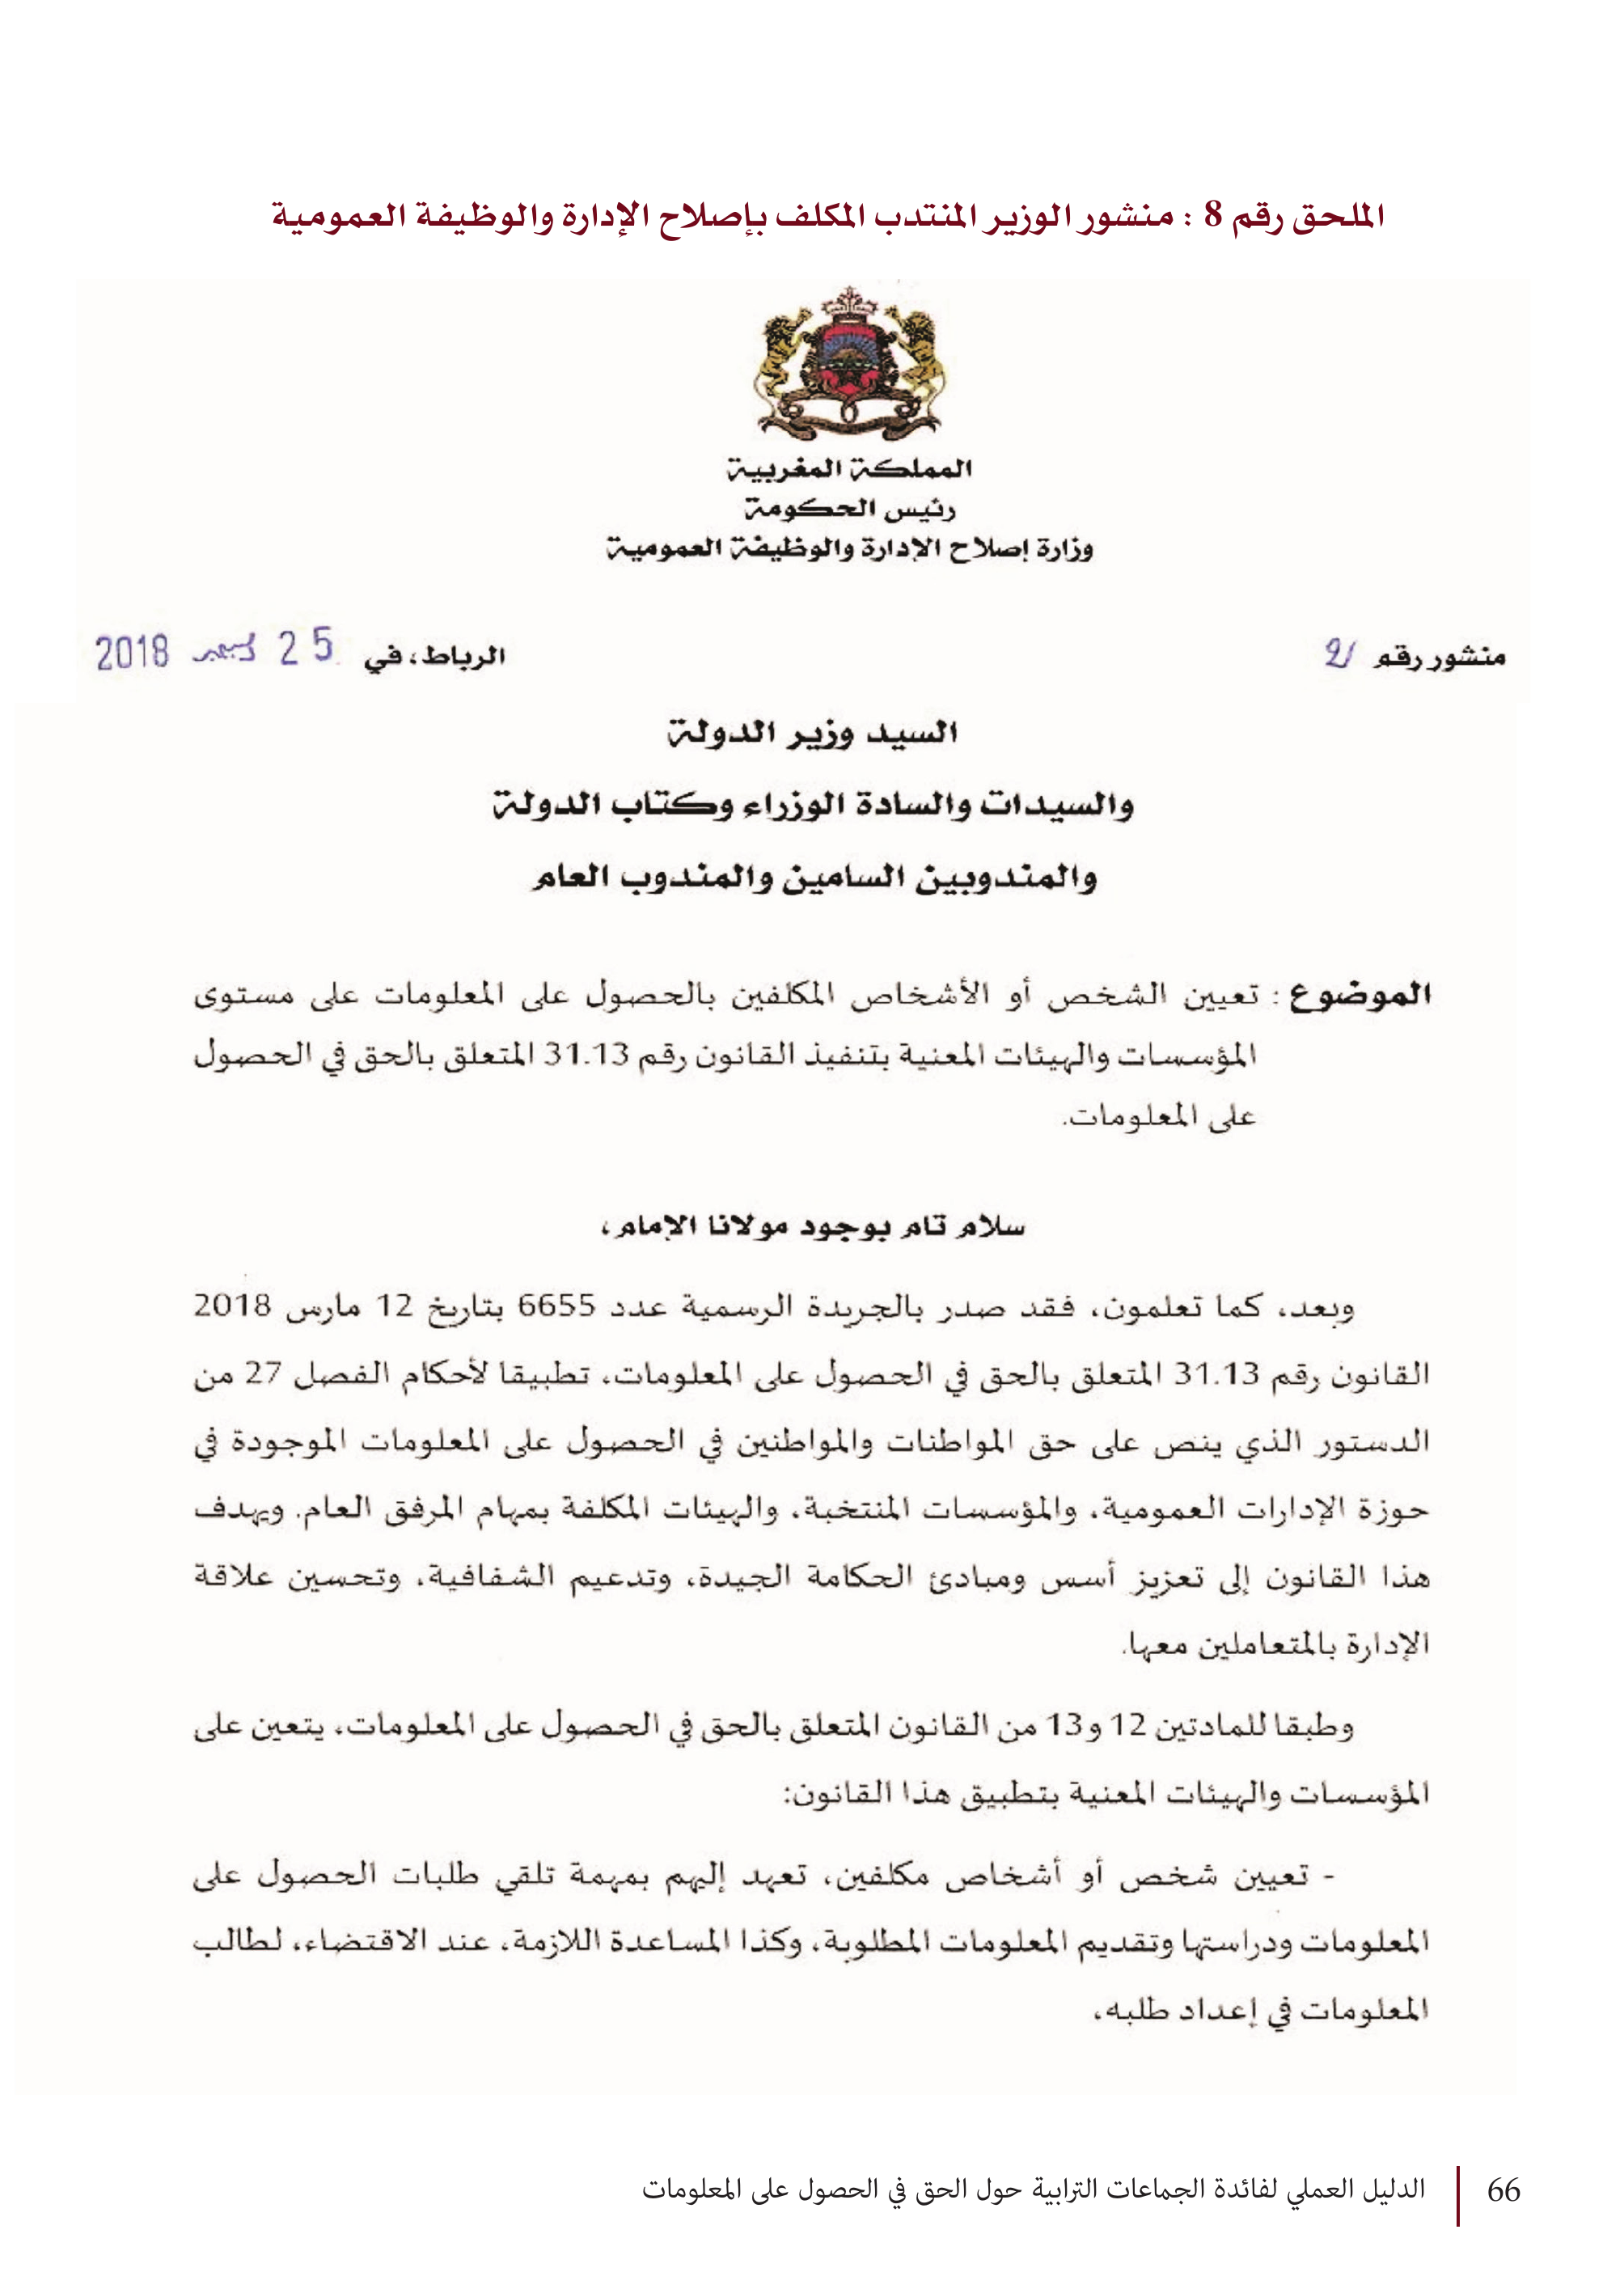 الملحق رقم 8 : منشور الوزير المنتدب المكلف بإصلاح الإدارة والوظيفة العمومية
المملكة المغربية
رئيس الحكومة
وزارة إصلاح الإدارة والوظيفة العمومية
منشور رقم 2
الرباط، في 25 دجنبر 2018
السيد وزير الدولة
والسيدات والسادة الوزراء وكتاب الدولة
والمندوبين السامين والمندوب العام
الموضوع : تعيين الشخص أو الأشخاص المكلفين بالحصول على المعلومات على مستوى
المؤسسات والهيئات المعنية بتنفيذ القانون رقم 31.13 المتعلق بالحق في الحصول
على المعلومات.
سلام تام بوجود مولانا الإمام،
وبعد، كما تعلمون، فقد صدر بالجريدة الرسمية عدد 6655 بتاريخ 12 مارس 2018
القانون رقم 31.13 المتعلق بالحق في الحصول على المعلومات، تطبيقا لأحكام الفصل 27 من
الدستور الذي ينص على حق المواطنات والمواطنين في الحصول على المعلومات الموجودة في
حوزة الإدارات العمومية، والمؤسسات المنتخبة، والهيئات المكلفة بمهام المرفق العام. ويهدف
هذا القانون إلى تعزيز أسس ومبادئ الحكامة الجيدة، وتدعيم الشفافية، وتحسين علاقة
الإدارة بالمتعاملين معها.
وطبقا للمادتين 12 و13 من القانون المتعلق بالحق في الحصول على المعلومات، يتعين على
المؤسسات والهيئات المعنية بتطبيق هذا القانون:
- تعيين شخص أو أشخاص مكلفين، تعهد إليهم بمهمة تلقي طلبات الحصول على
المعلومات ودراستها وتقديم المعلومات المطلوبة، وكذا المساعدة اللازمة، عند الاقتضاء، لطالب
المعلومات في إعداد طلبه،
66 الدليل العملي لفائدة الجماعات الترابية حول الحق في الحصول على المعلومات